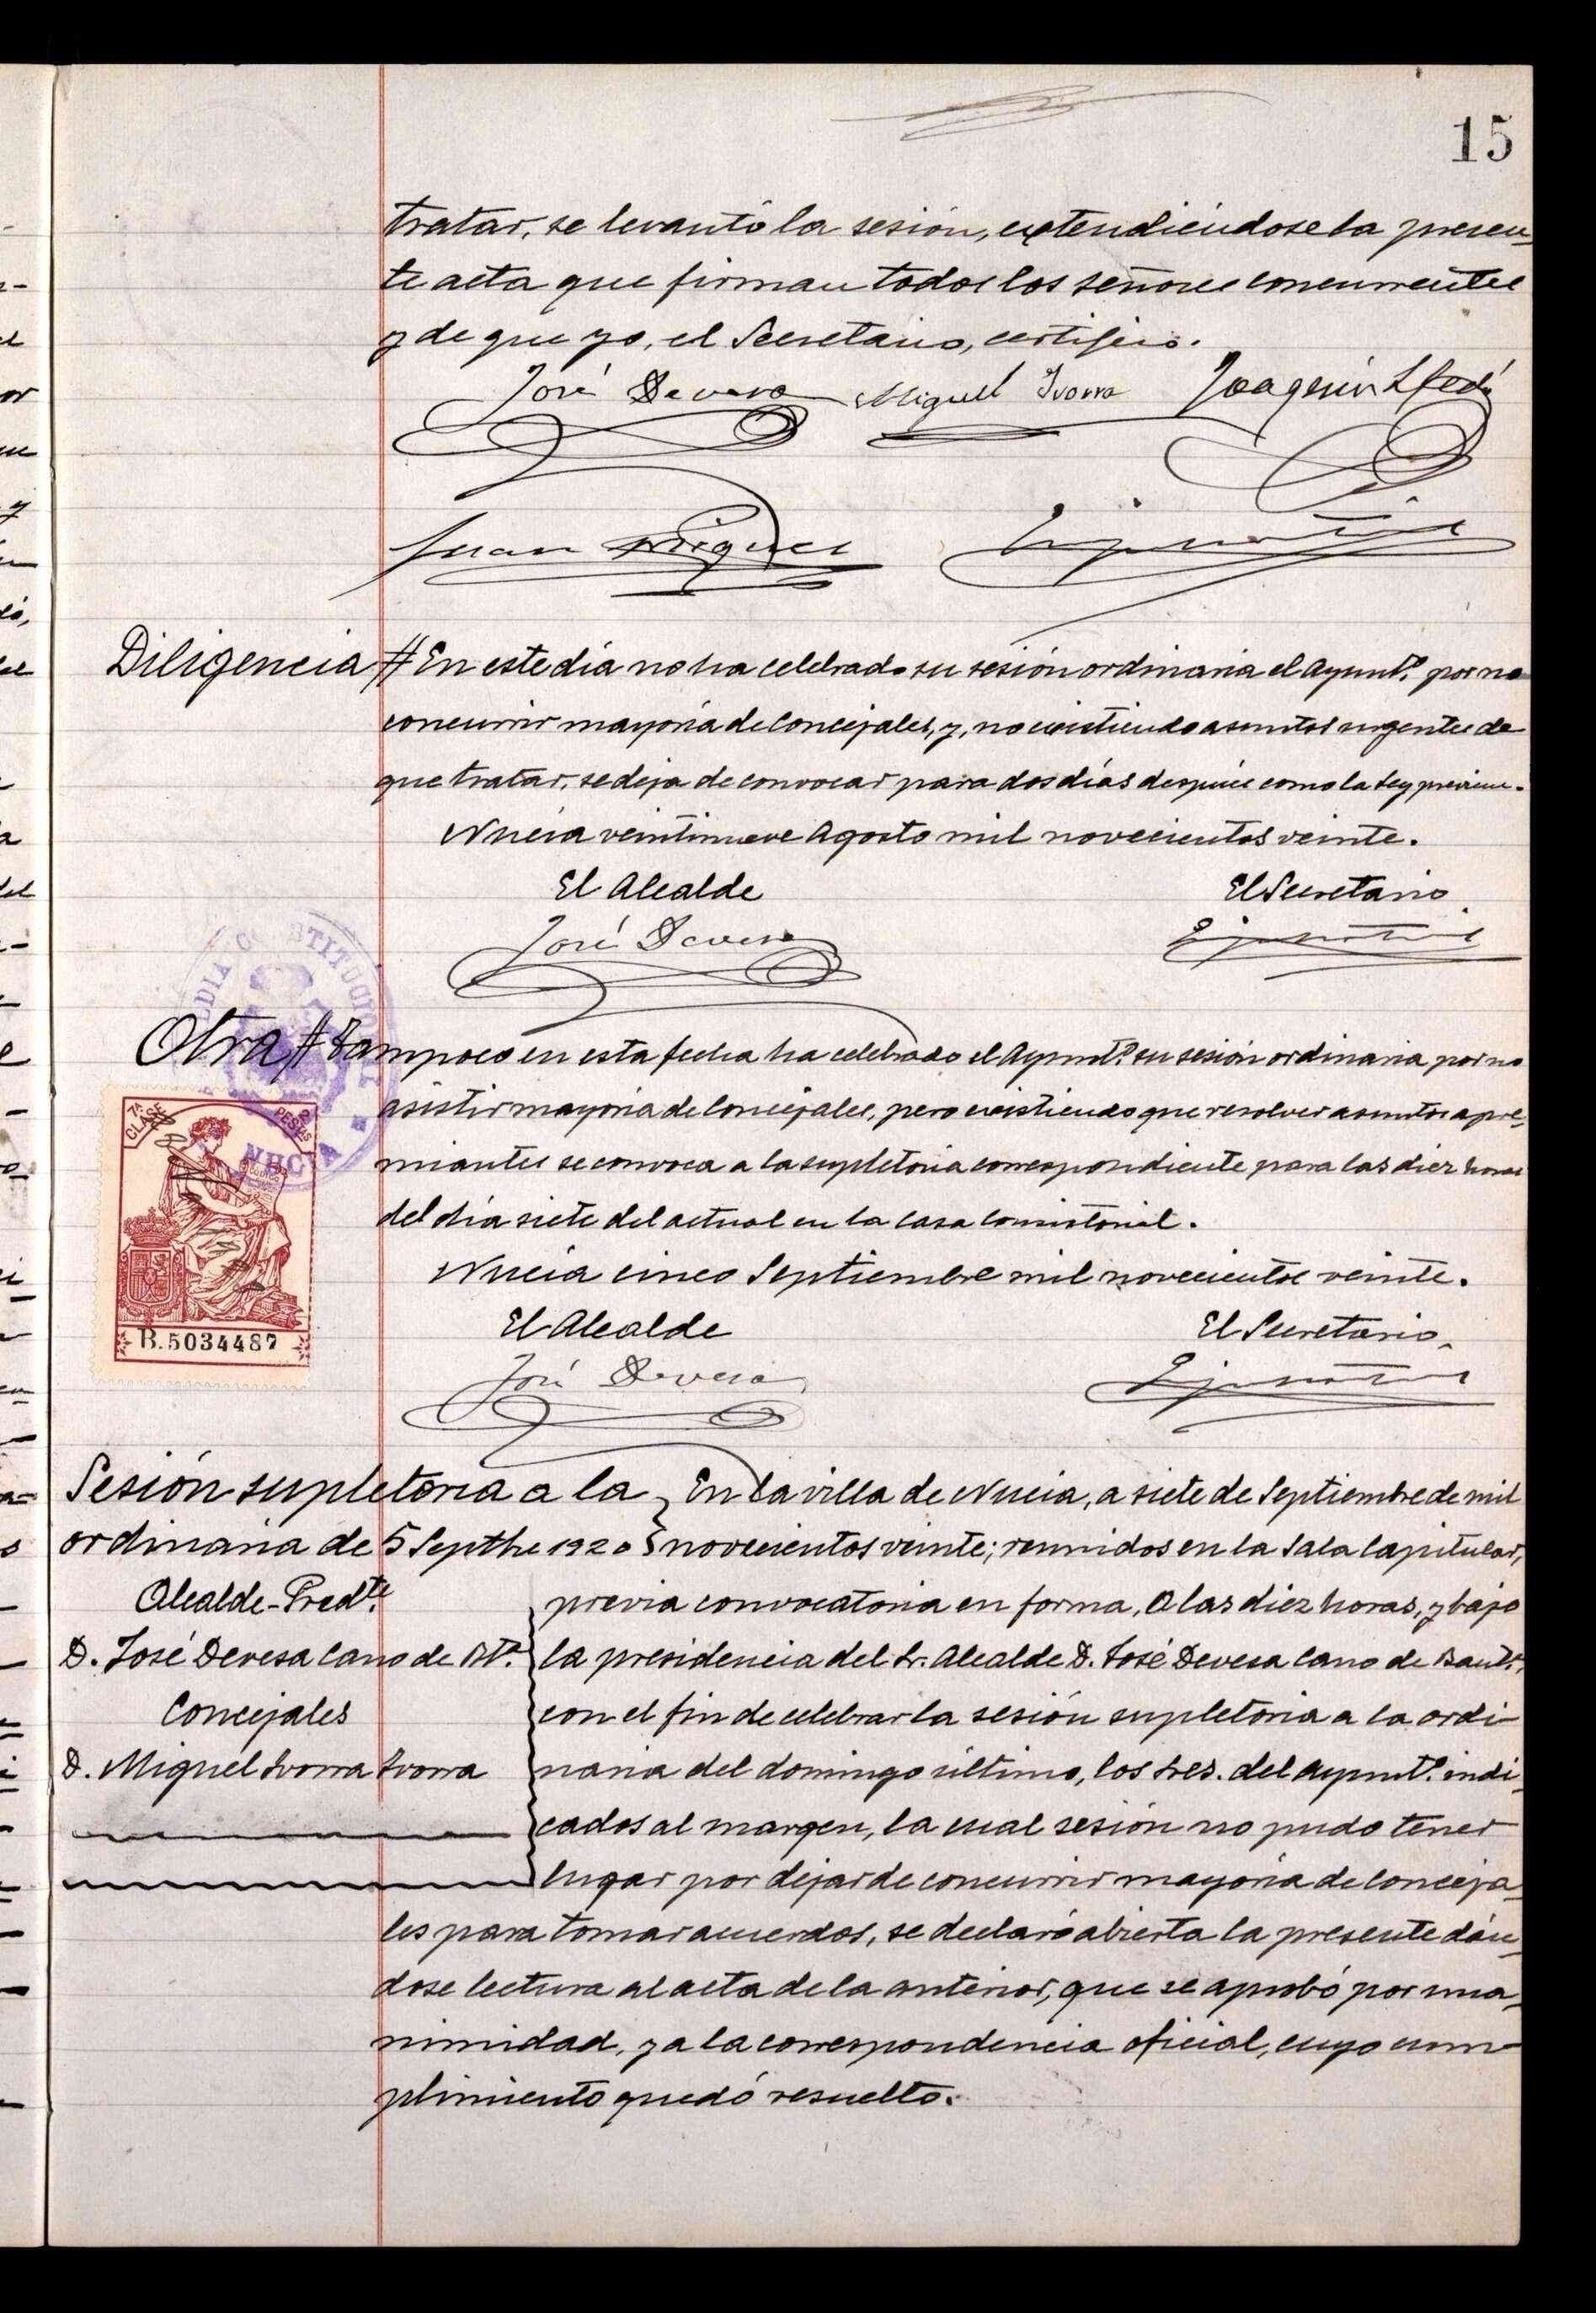 15
tratar, se levantó la sesión, extendiéndose la presen-
te acta que firman todos los señores concurrentes
y de que yo, el Secretario, certifico.
José Devesa Miguel Ivorra Joaquín Lledó
Juan
Diligencia # En este día no ha celebrado su sesión ordinaria el Ayunt.º por no
concurrir mayoría de Concejales, y, no existiendo asuntos urgentes de
que tratar, se deja de convocar para dos días después como la Ley previene.
Nucia veintinueve Agosto mil novecientos veinte.
El Alcalde El Secretario
José Devesa
Otra # Tampoco en esta fecha ha celebrado el Ayunt.º su sesión ordinaria por no
asistir mayoría de Concejales, pero existiendo que resolver asuntos apre-
miantes se convoca a la supletoria correspondiente para las diez horas
del día siete del actual en la Casa Consistorial.
Nucia cinco Septiembre mil novecientos veinte.
El Alcalde El Secretario,
José Devesa
CONSTITUCIONAL
NUCIA
7ª CLASE
2 PESETAS
B.5034487
Sesión supletoria a la
ordinaria de 5 Septbre 1920
Alcalde-Presdte.
D. José Devesa Cano de Bta.
Concejales
D. Miguel Ivorra Ivorra
En la villa de Nucia, a siete de Septiembre de mil
novecientos veinte; reunidos en la Sala Capitular,
previa convocatoria en forma, a las diez horas, y bajo
la presidencia del Sr. Alcalde D. José Devesa Cano de Bautª,
con el fin de celebrar la sesión supletoria a la ordi-
naria del domingo último, los Sres. del Ayunt.º indi-
cados al margen, la cual sesión no pudo tener
lugar por dejar de concurrir mayoría de Conceja-
les para tomar acuerdos, se declaró abierta la presente dán-
dose lectura al acta de la anterior, que se aprobó por una-
nimidad, y a la correspondencia oficial, cuyo cum-
plimiento quedó resuelto.